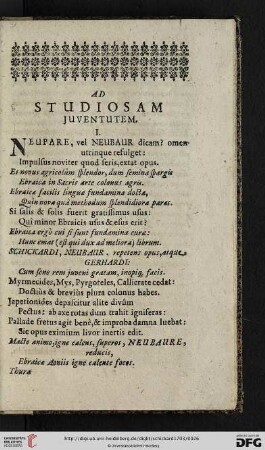 AD
STUDIOSAM
JUVENTUTEM.
I.
NEUPARE, vel NEUBAUR dicam? omen
utrinque refulget:
Impulsus noviter quod seris, extat opus.
Et novus agricolùm splendor, dum semina spargis
Ebraica in Sacris arte colonus agris.
Ebraeae facilis linguae fundamina docta,
Quin nova quâ methodum splendidiora pares.
Si salis & solis fuerit gratissimus usus:
Qui minor Ebraicis usus & esus erit?
Ebraea ergò cui si sunt fundamina curae:
Hunc emat (est qui dux ad meliora) librum.
SCHICKARDI, NEUBAUR. repetens opus, atque
GERHARDI:
Cum sene rem juveni gratam, inopiq́; facis.
Myrmecides, Mys, Pyrgoteles, Callicrate cedat:
Doctiùs & breviùs plura colonus habes.
Japetionides depascitur alite divûm
Pectus: ab axe rotas dum trahit igniferas:
Pallade fretus agit benè, & improba damna luebat:
Sic opus eximium livor inertis edit.
Macte animo, igne calens, superos, NEUBAURE,
reducis,
Ebraicae Aoniis igne calente focos.
Thurae
http://digi.ub.uni-heidelberg.de/diglit/schickard1703/0026
© Universitätsbibliothek Heidelberg
UNIVERSITÄTS-
BIBLIOTHEK
HEIDELBERG
Gefördert durch
DFG